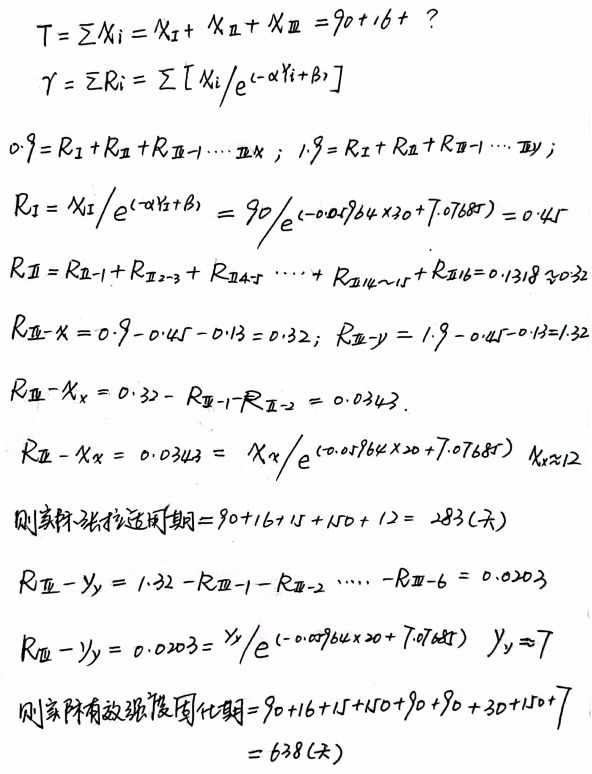 T = ΣXi = XⅠ + XⅡ + XⅢ = 90+16+ ?
γ = ΣRi = Σ[Xi/e^(-αYi+β)]
0.9 = RⅠ + RⅡ + RⅢ-1 ····· ⅢX ; 1.9 = RⅠ + RⅡ + RⅢ-1 ··· Ⅲy ;
RⅠ = XⅠ/e^(-αYⅠ+β) = 90/e^(-0.05964×30+7.07685) = 0.45
RⅡ = RⅡ-1 + RⅡ2-3 + RⅡ4-5 ····· + RⅡ14~15 + RⅡ16 = 0.1318 ≈ 0.32
RⅢ-X = 0.9-0.45-0.13 = 0.32; RⅢ-y = 1.9-0.45-0.13=1.32
RⅢ-Xx = 0.32 - RⅢ-1 - RⅡ-2 = 0.0343.
RⅢ-Xx = 0.0343 = Xx/e^(-0.05964×20+7.07685) Xx≈12
则实际张拉适用期=90+16+15+150+12= 283(天)
RⅢ-Yy = 1.32 -RⅢ-1-RⅢ-2 ····· -RⅢ-6 = 0.0203
RⅢ-Yy = 0.0203 = Yy/e^(-0.05964×20+7.07685) Yy≈7
则实际有效强度固化期=90+16+15+150+90+90+30+150+7
=638(天)